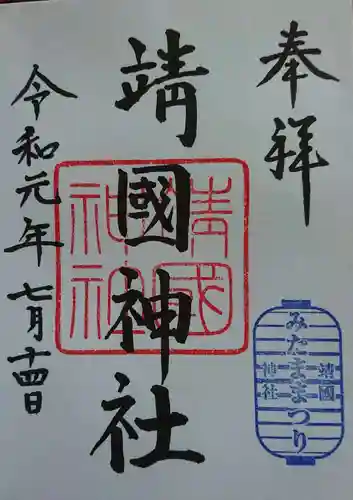 奉祥
靖國神社
令和元年七月十四日
靖國神社
みたままつり
靖國
神社